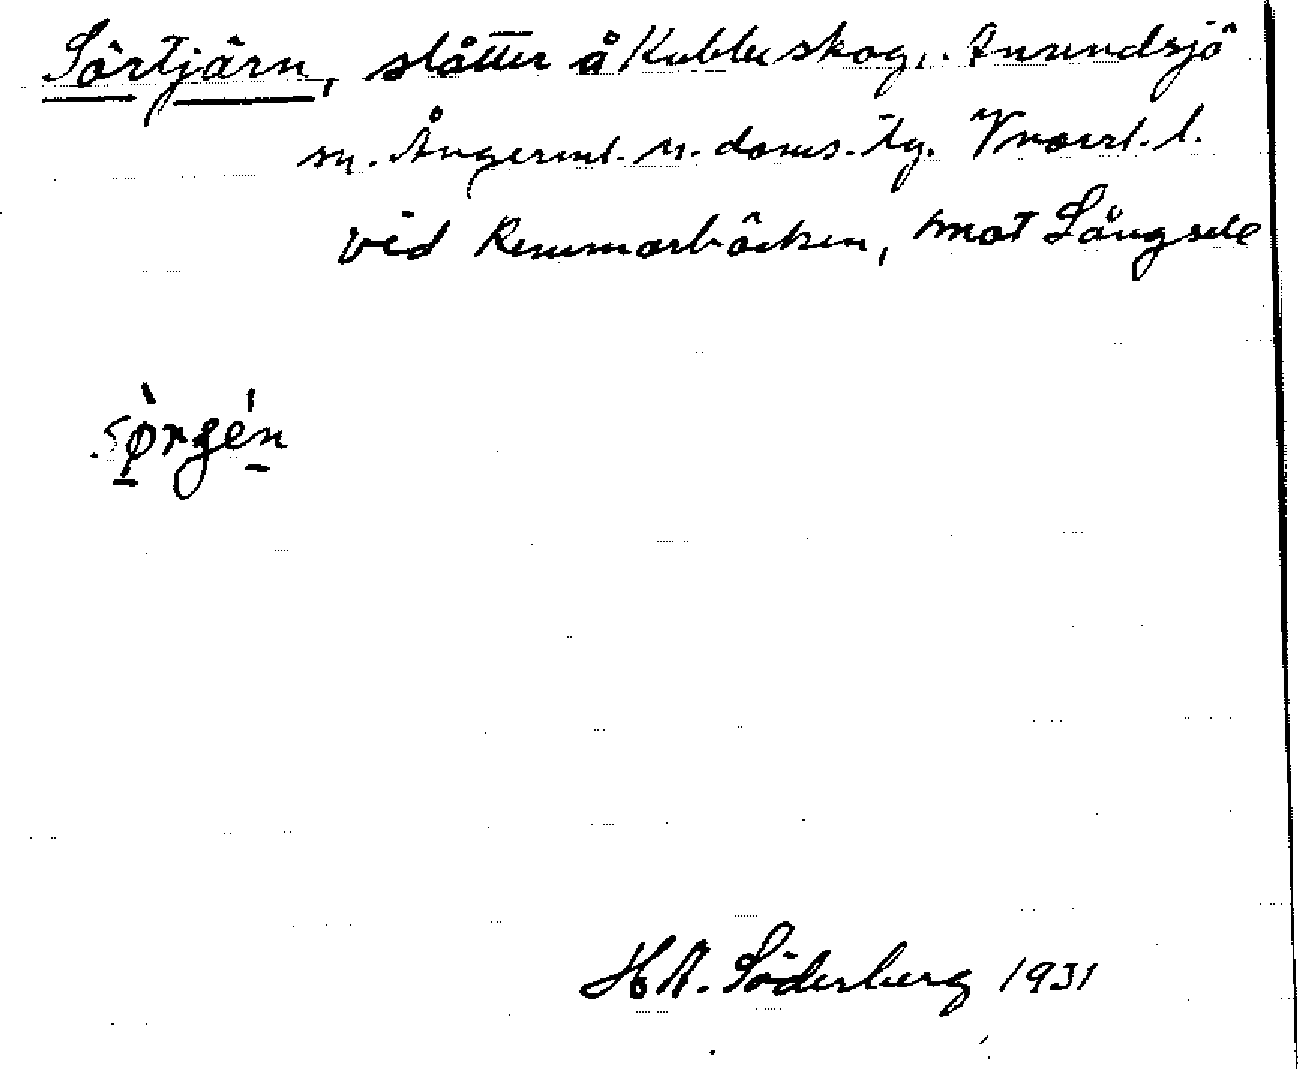 Sörtjärn, slåtter å Kubbe skog, Anundsjö
sn. Ångerml. n. doms. tg. Vnorrl. l.
vid Remmarbäcken, mot Långsele
H.A. Söderberg 1931